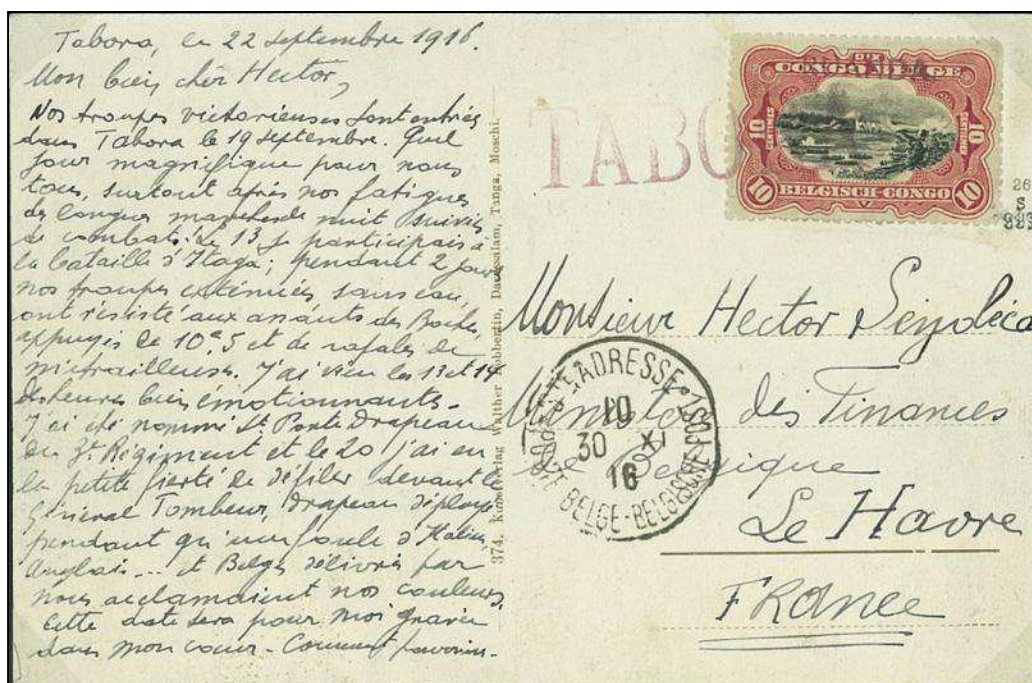 Tabora, le 22 septembre 1916.
Mon bien cher Hector,
Nos troupes victorieuses sont entrées
dans Tabora le 19 septembre. Quel
jour magnifique pour nous
tous, surtout après nos fatigues
de longues marches de nuit suivies
de combats. Le 13 je participais à
la bataille d'Itaga ; pendant 2 jours
nos troupes exténuées, sans eau,
ont résisté aux assauts des Boches,
appuyés de 10c5 et de rafales de
mitrailleuses. J'ai vécu les 13 et 14
des heures bien émotionnantes.
J'ai été nommé Lt Porte Drapeau
du 3e Régiment et le 20 j'ai eu
la petite fierté de défiler devant le
Général Tombeur, drapeau déployé
pendant qu'une foule d'
Anglais... et Belges délivrés par
nous acclamaient nos couleurs.
Cette date sera pour moi gravée
dans mon coeur - Comment
374. Kunstverlag Walther Dobbertin, Daressalam, Tanga, Moschi.
TABO
RUANDA
CONGO BELGE
10 CENTIMES
10 CENTIEMEN
10 BELGISCH-CONGO 10
Monsieur Hector
Ministère des Finances
de Belgique
Le Havre
FRANCE
STE ADRESSE
10
30 XI
16
POSTE BELGE-BELGISCHE POST
26
S